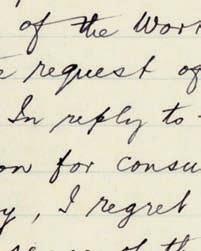 of the Wor
request of
In reply to
on for consu
y, I regret
of the